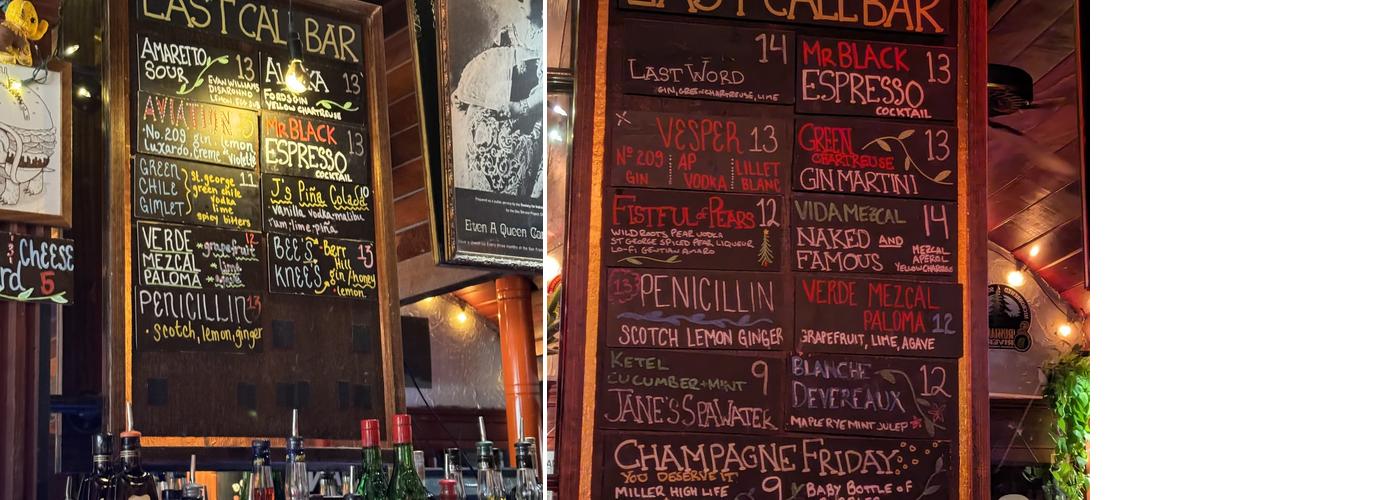 LAST CALL BAR
AMARETTO
SOUR
13
EVAN WILLIAMS
DISARONNO
LEMON, EGG
13
FORDS GIN
YELLOW CHARTREUSE
AVIATION
No. 209 gin, lemon,
Luxardo, Creme violette
MR BLACK
ESPRESSO
COCKTAIL
13
GREEN
CHILE
GIMLET
St. george
green chile
vodka
lime
spicy bitters
11
J's Piña Colada 10
vanilla vodka-malibu
rum-lime-piña
VERDE
MEZCAL
PALOMA
12
grapefruit
lime
BEE'S
KNEE'S
Barr
Hill
gin/honey
lemon
13
PENICILLIN 13
scotch, lemon, ginger
CHEESE
5
Eiten A Queen
LAST CALL BAR
14
LAST WORD
GIN, GREEN CHARTREUSE, LIME
MR BLACK
ESPRESSO
COCKTAIL
13
VESPER 13
No 209
GIN
AP
VODKA
LILLET
BLANC
GREEN
CHARTREUSE
GIN MARTINI
13
FISTFUL of PEARS 12
WILD ROOTS PEAR VODKA
ST GEORGE SPICED PEAR LIQUEUR
LO-FI GENTIAN AMARO
VIDA MEZCAL
NAKED AND
FAMOUS
14
MEZCAL
APEROL
YELLOW CHARTREUSE
13 PENICILLIN
SCOTCH LEMON GINGER
VERDE MEZCAL
PALOMA 12
GRAPEFRUIT, LIME, AGAVE
KETEL
CUCUMBER+MINT
JANE'S SPAWATER
9
BLANCHE
DEVEREAUX
12
MAPLE RYE MINT JULEP
CHAMPAGNE FRIDAY
YOU DESERVE IT
MILLER HIGH LIFE 9
BABY BOTTLE OF